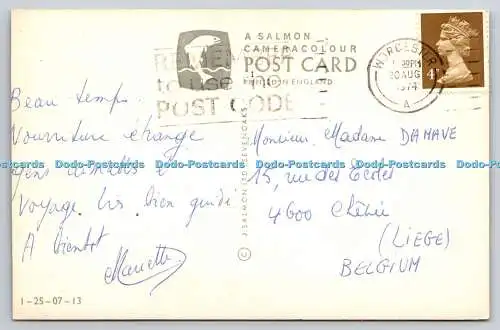 A SALMON
CAMERACOLOUR
POST CARD
PRINTED IN ENGLAND
REMEMBER
to use the
POST CODE
WORCESTER
20 AUG
1974
A
Beau temps.
Nourriture étrange
Gens aimables et
Voyage très bien guidé
A bientôt
Mariette
© J. SALMON LTD SEVENOAKS
Monsieur, Madame DAMAVE
15, rue des Ecoles
4600 Chênée
(LIEGE)
BELGIUM
1-25-07-13
Dodo-Postcards Dodo-Postcards Dodo-Postcards Dodo-Postcards Dodo-Postcards